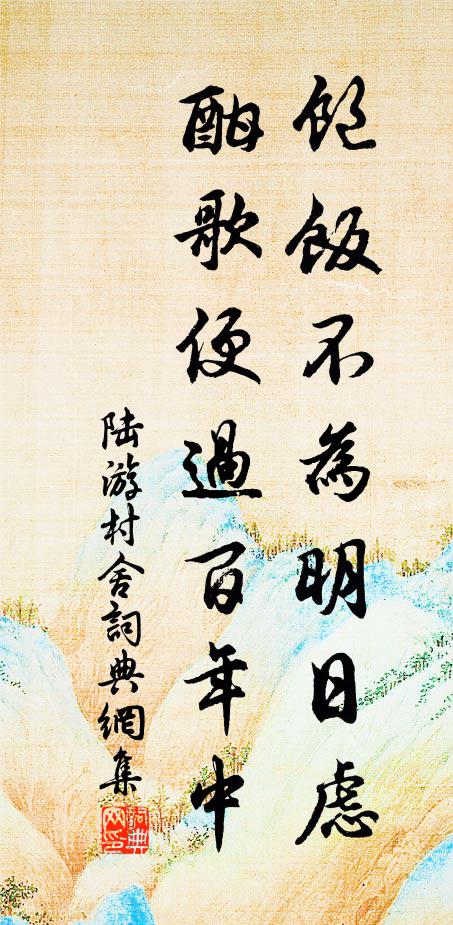 飽飯不為明日慮
酣歌便過百年中
陆游村舍詞典網集
詞典